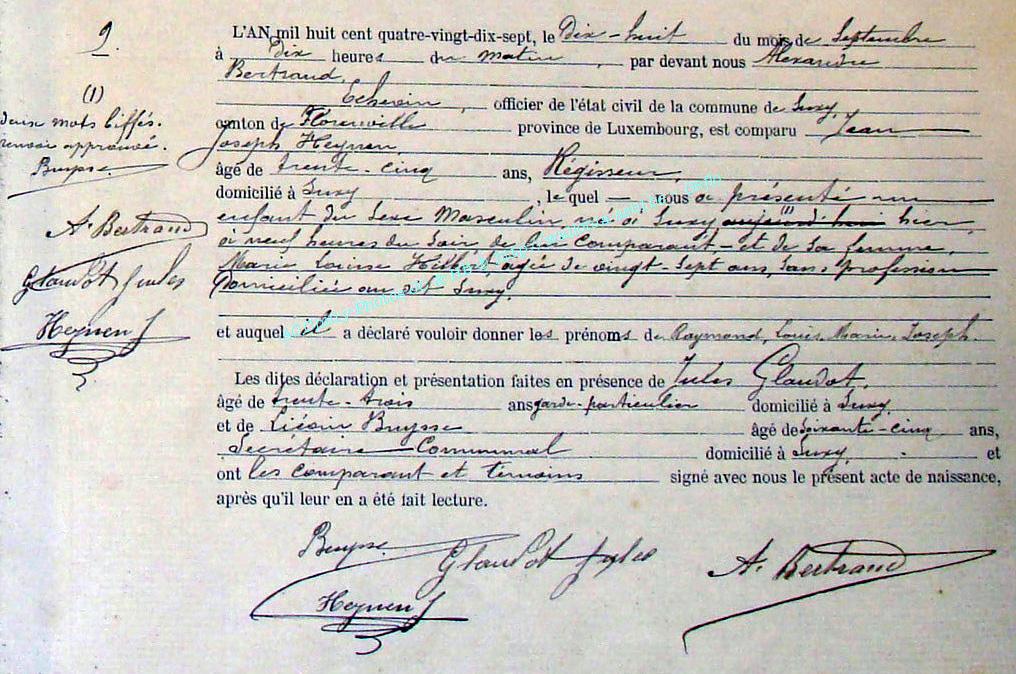 9.
L'AN mil huit cent quatre-vingt-dix-sept, le Dix-huit du mois de Septembre
à Dix heures du matin, par devant nous Alexandre
Bertrand,
Echevin, officier de l'état civil de la commune de Suxy,
canton de Florenville province de Luxembourg, est comparu Jean
Joseph Heynen
âgé de trente-cinq ans, Régisseur,
domicilié à Suxy, le quel — nous a présenté un
enfant du sexe masculin né à Suxy aujourd'hui (1) hier
à neuf heures du soir, de lui comparant – et de sa femme
Marie Louise Hilbert agée de vingt-sept ans, sans profession
Domiciliée au dit Suxy.
et auquel il a déclaré vouloir donner les prénoms de Raymond, Louis, Marie, Joseph.
Les dites déclaration et présentation faites en présence de Jules Glaudot,
âgé de trente-trois ans garde-particulier domicilié à Suxy
et de Buysse âgé de soixante-cinq ans,
Secrétaire Communal domicilié à Suxy. et
ont les comparant et témoins signé avec nous le présent acte de naissance,
après qu'il leur en a été fait lecture.
(1)
deux mots biffés.
renvoi approuvé.
Buysse
A. Bertrand
Glaudot Jules
Heynen J
Buysse Glaudot Jules A. Bertrand
Heynen J